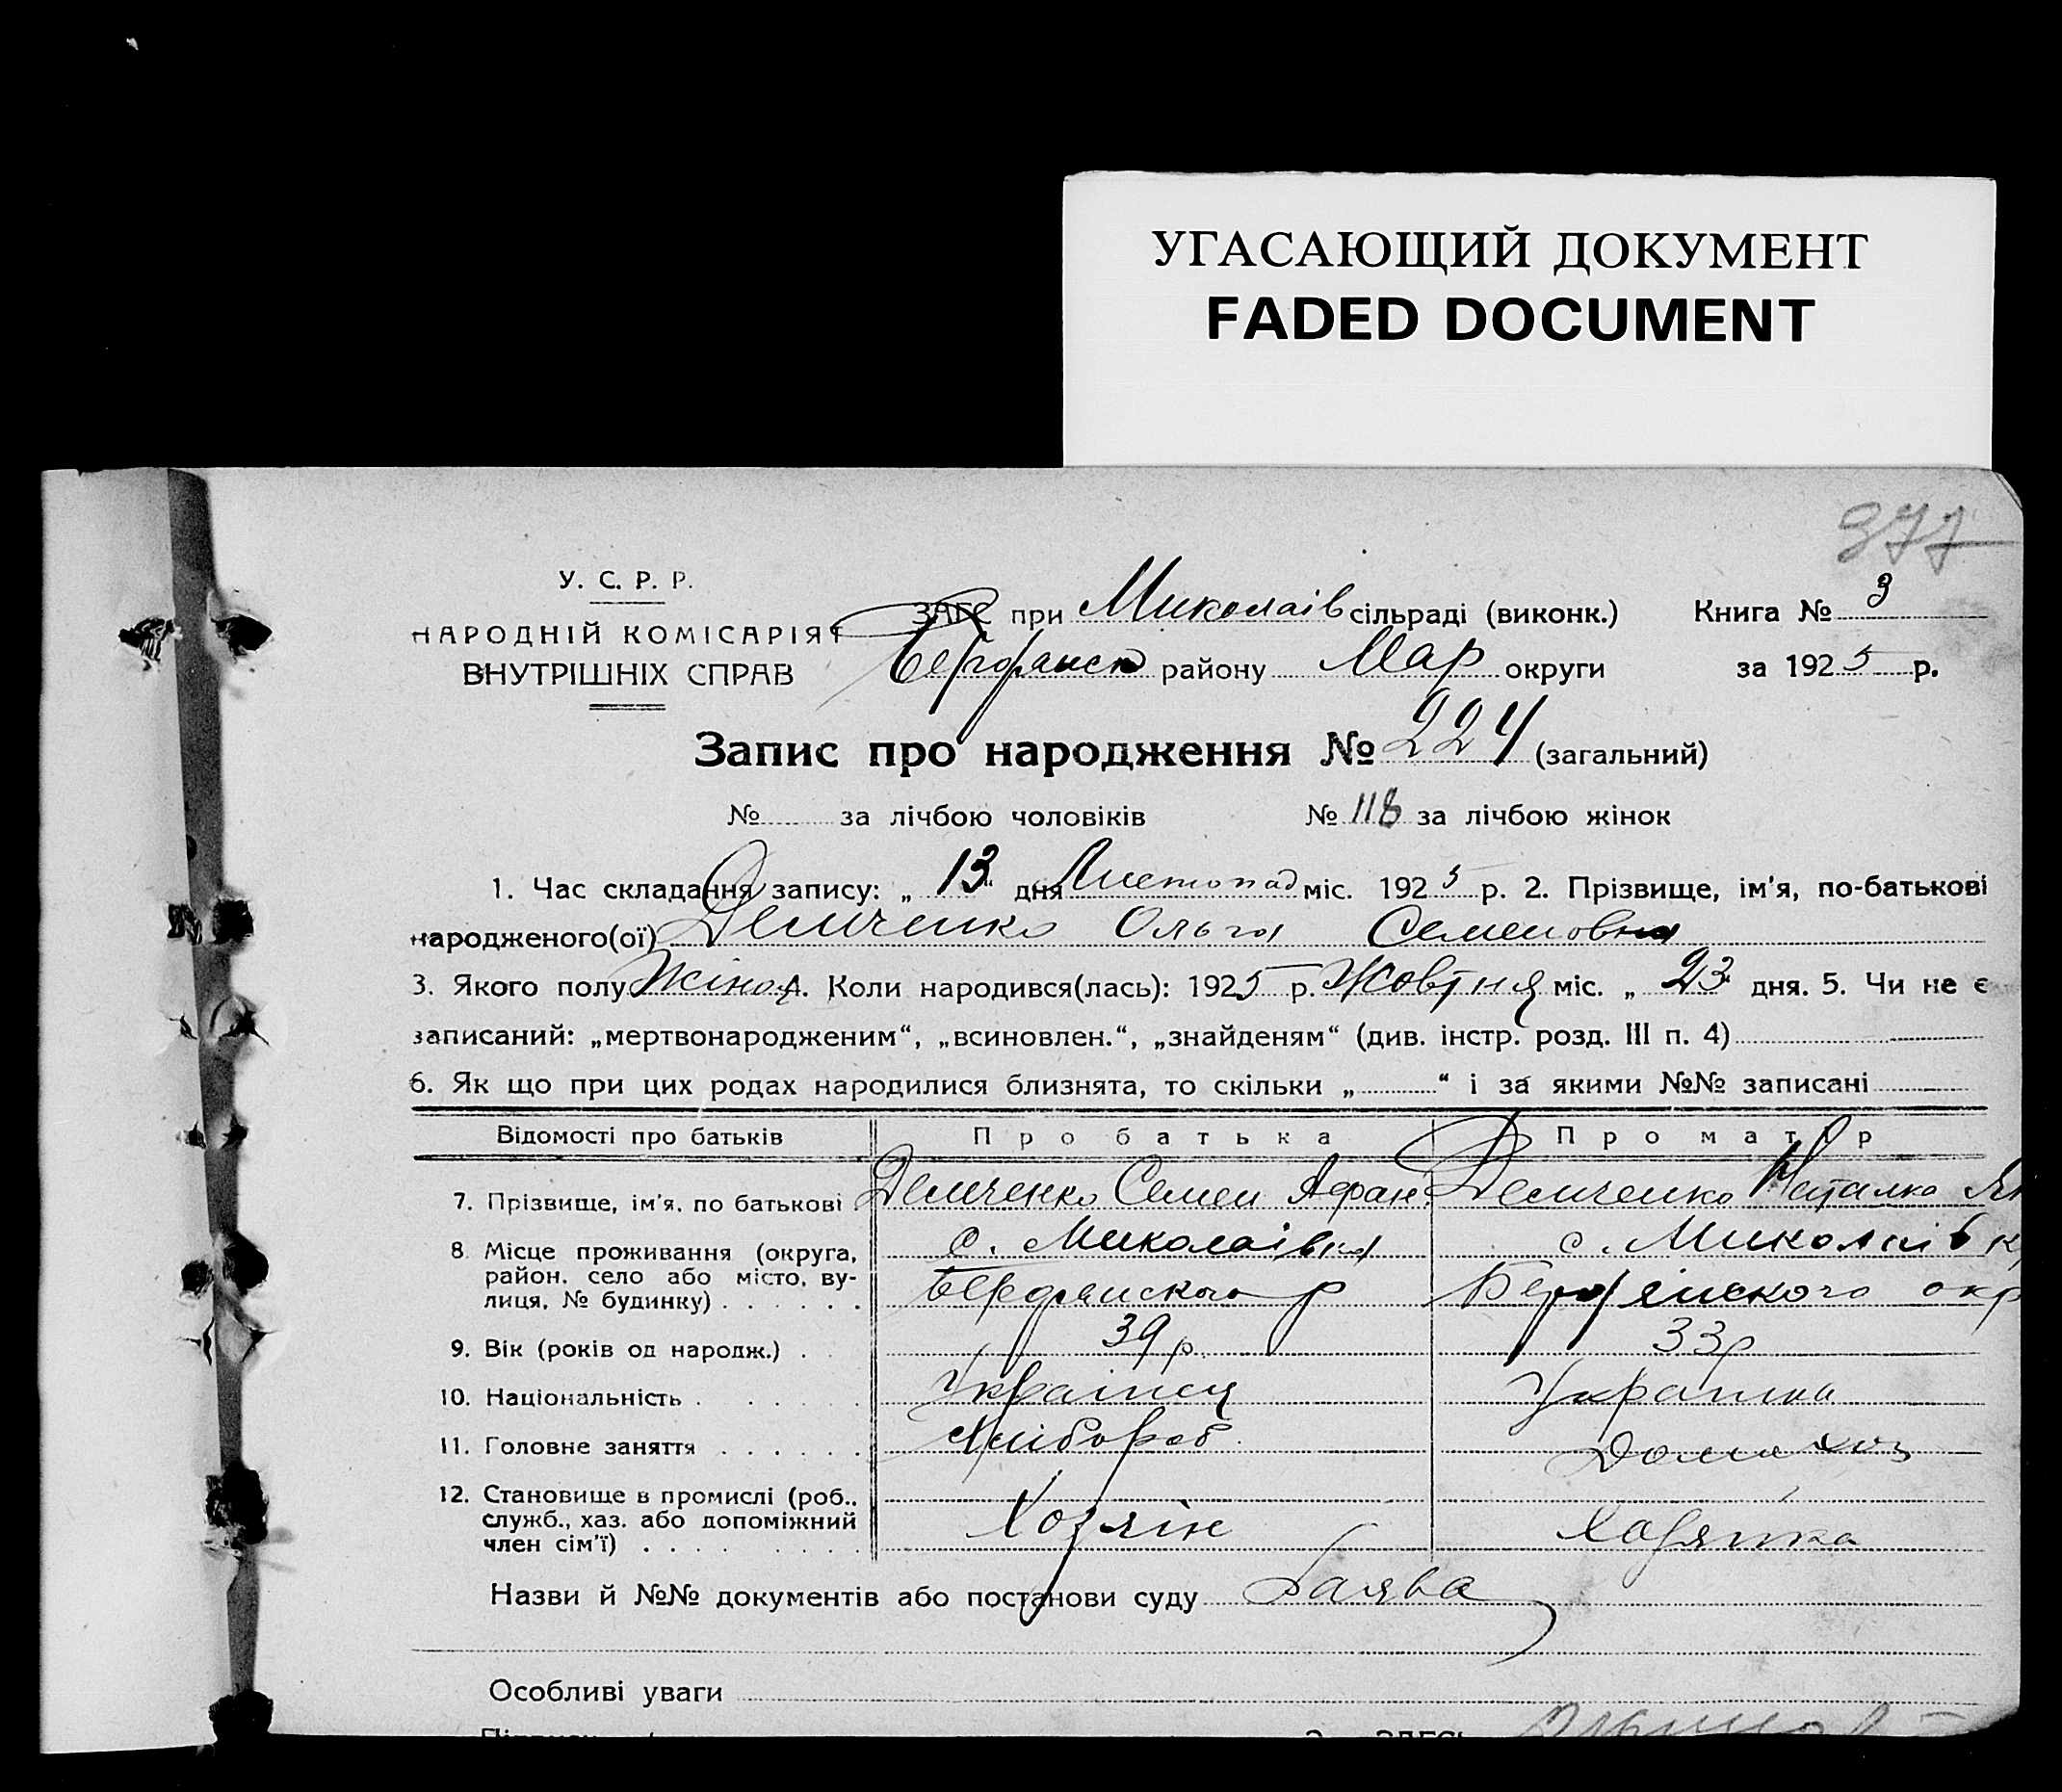 УГАСАЮЩИЙ ДОКУМЕНТ
FADED DOCUMENT
377
У. С. Р. Р.
НАРОДНІЙ КОМІСАРІЯТ
ВНУТРІШНІХ СПРАВ
ЗАГС при Миколаів сільраді (виконк.) Книга № 3
Бердянск району Мар округи за 1925 р.
Запис про народження № 224 (загальний)
№ за лічбою чоловіків № 118 за лічбою жінок
1. Час складання запису: „ 13 “ дня Листопад міс. 1925 р. 2. Прізвище, ім'я, по-батькові
народженого(ої) Демченко Ольга Семеновна
3. Якого полу Жіноч. 4. Коли народився(лась): 1925 р. Жовтня міс. „ 23 “ дня. 5. Чи не є
записаний: „мертвонародженим“, „всиновлен.“, „знайденям“ (див. інстр. розд. III п. 4)
6. Як що при цих родах народилися близнята, то скільки „ “ і за якими №№ записані
Відомості про батьків Про батька Про матір
7. Прізвище, ім'я, по батькові Демченко Семен Афан. Демченко Наталка Як
8. Місце проживання (округа, с. Миколаівка с. Миколаівк
район, село або місто, ву-
лиця, № будинку) Бердянского р Бердянского окр
9. Вік (років од народж.) 39 р. 33 р
10. Національність Украінец Украінка
11. Головне заняття Хлібороб Дома хоз
12. Становище в промислі (роб.,
служб., хаз. або допоміжний Хозяін Хозяйка
член сім'ї)
Назви й №№ документів або постанови суду Заява
Особливі уваги